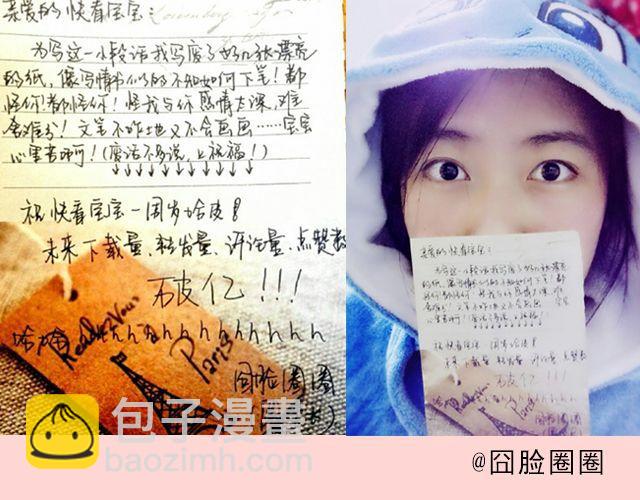 亲爱的快看宝宝：
为写这一小段话我写废了好几张漂亮
的纸，像写情书似的不知如何下笔！都
怪你！都怪你！怪我与你感情太深，难
舍难分！文笔不咋地又不会画画……宝宝
心里苦啊！（废话不多说，上祝福！）
↓↓↓↓↓↓↓↓↓↓↓
祝快看宝宝一周岁哈皮！
未来下载量、转发量、评论量、点赞数
破亿！！！
哈哈hhhhhhhhh
囧脸圈圈
Rendez-Vous
Paris
包子漫畫
baozimh.com
亲爱的快看宝宝：
为写这一小段话我写废了好几张漂亮
的纸，像写情书似的不知如何下笔！都
怪你！都怪你！怪我与你感情太深，难
舍难分！文笔不咋地又不会画画……宝宝
心里苦啊！（废话不多说，上祝福！）
↓↓↓↓↓↓↓↓↓↓↓
祝快看宝宝一周岁哈皮！
未来下载量、转发量、评论量、点赞数
破亿！！！
囧脸圈圈
@囧脸圈圈